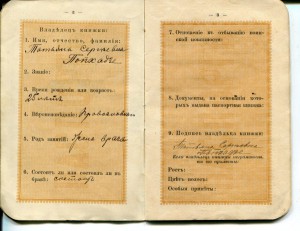 — 2 —
Владѣлецъ книжки:
1. Имя, отчество, фамилія:
Татьяна Сергѣевна
2. Званіе:
3. Время рожденія или возрастъ:
25 лѣтъ
4. Вѣроисповѣданіе: Православная
5. Родъ занятій: Жена врача
6. Состоитъ ли или состоялъ ли въ
бракѣ: состоитъ
— 3 —
7. Отношеніе къ отбыванію воин-
ской повинности:
8. Документы, на основаніи кото-
рыхъ выдана паспортная книжка:
9. Подпись владѣльца книжки:
Татьяна Сергѣевна
Ростъ:
Цвѣтъ волосъ:
Особыя примѣты: